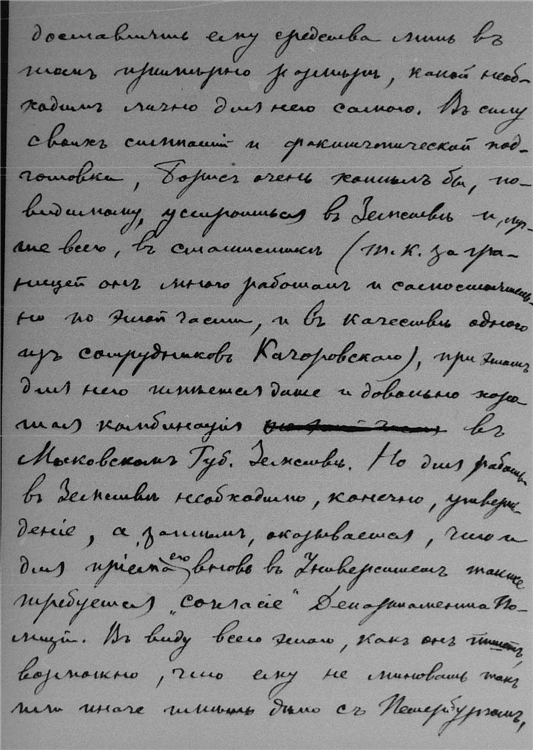 доставлять ему средства лишь въ
томъ примѣрно размѣрѣ, какой необ-
ходимъ лично для него самого. Въ силу
своихъ симпатій и фактической под-
готовки, Борисъ очень хотѣлъ бы, по-
видимому, устроиться въ Земствѣ и, луч-
ше всего, въ статистикѣ (т.к. за гра-
ницей онъ много работалъ и самостоятель-
но по этой части, и въ качествѣ одного
изъ сотрудниковъ Качоровскаго), при этомъ
для него имѣется даже и довольно хоро-
шая комбинація въ
Московскомъ Губ. Земствѣ. Но для работы
въ Земствѣ необходимо, конечно, утверж-
деніе, а затѣмъ, оказывается, что и
для пріема его вновь въ Университетъ также
требуется „согласіе" Департамента По-
лиціи. Въ виду всего этого, какъ онъ пишетъ,
возможно, что ему не миновать такъ
или иначе имѣть дѣло съ Петербургомъ,